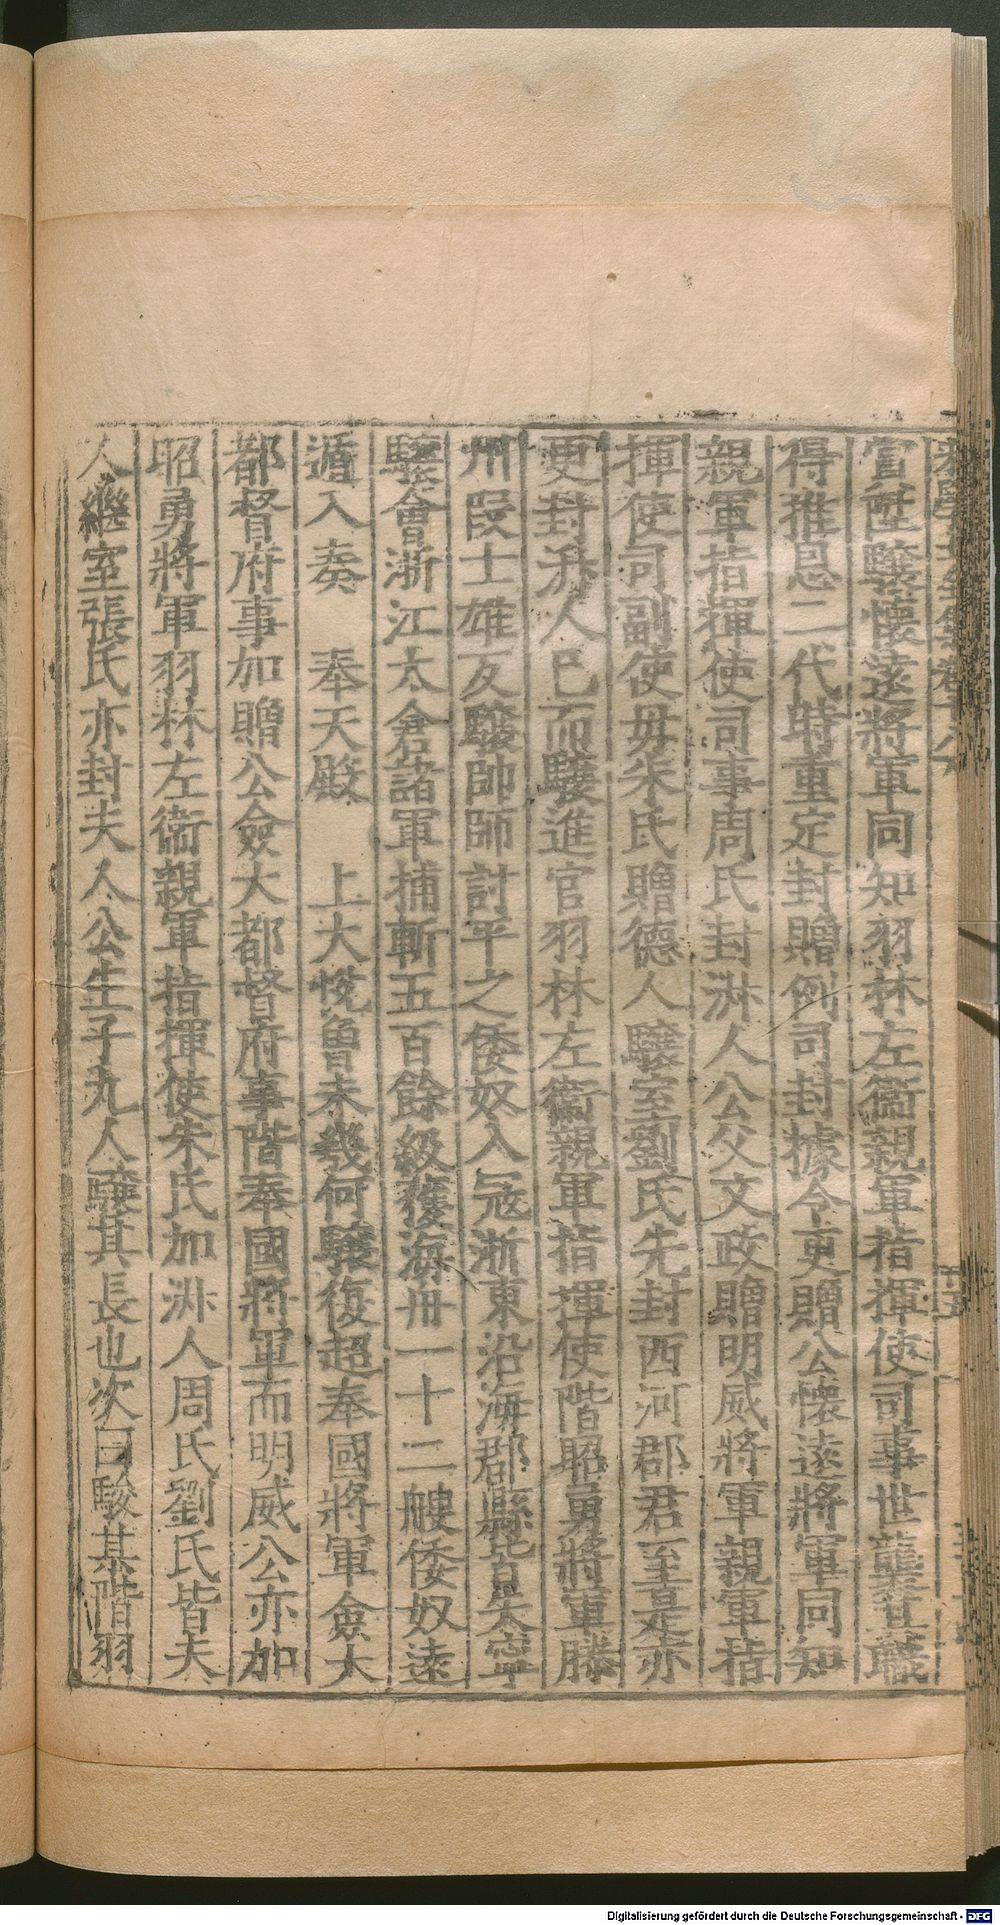 賞陞驥懷遠將軍同知羽林左衞親軍指揮使司事世襲其職
得推恩二代時重定封贈例司封據令更贈公懷遠將軍同知
親軍指揮使司事周氏封淋人公父文政贈明威將軍親軍指
揮使司副使毋朱氏贈德人驥室劉氏先封西河郡君至是亦
更封淋人已而驥進官羽林左衞親軍指揮使階昭勇將軍滕
州叚士雄反驥帥師討平之倭奴入冦浙東沿海郡縣皆失寧
驥會浙江太倉諸軍捕斬五百餘級獲海舟一十二艘倭奴遠
遁入奏 奉天殿 上大悅曾未幾何驥復超奉國將軍僉大
都督府事加贈公僉大都督府事階奉國將軍而明威公亦加
昭勇將軍羽林左衞親軍指揮使朱氏加淋人周氏劉氏皆夫
人繼室張氏亦封夫人公生子九人驥其長也次曰駿某階羽
十五
Digitalisierung gefördert durch die Deutsche Forschungsgemeinschaft - DFG